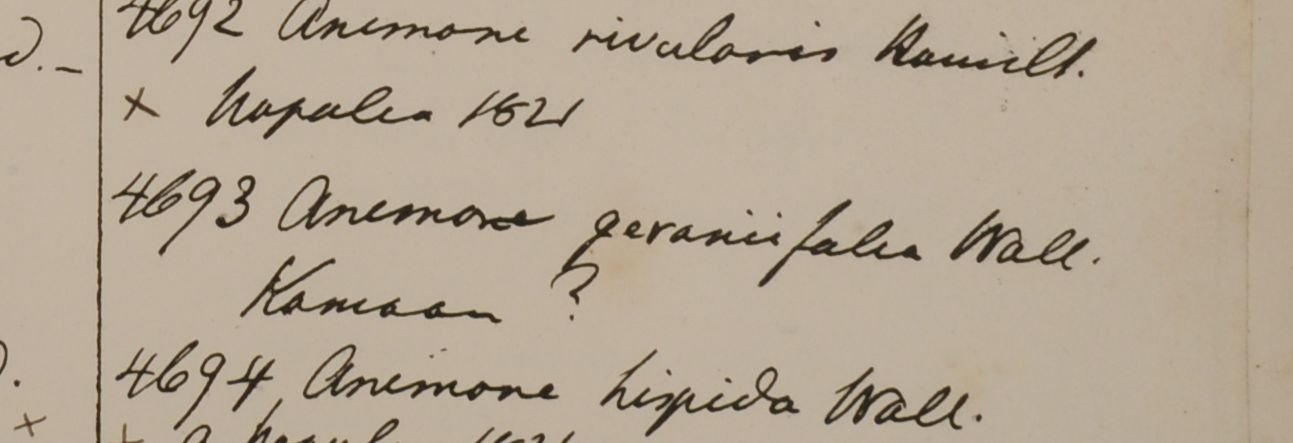 4692 Anemone rivularis Hamilt.
d. -
× Napalia 1821
4693 Anemone geraniifolia Wall.
Kamaon ?
4694 Anemone hispida Wall.